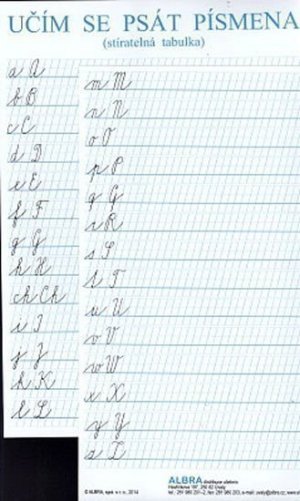 UČÍM SE PSÁT PÍSMENA
(stíratelná tabulka)
a A
b B
c C
d D
e E
f F
g G
h H
ch Ch
i I
j J
k K
l L
m M
n N
o O
p P
q Q
r R
s S
t T
u U
v V
w W
x X
y Y
z Z
© ALBRA, spol. s r. o., 2014
ALBRA distribuce učebnic